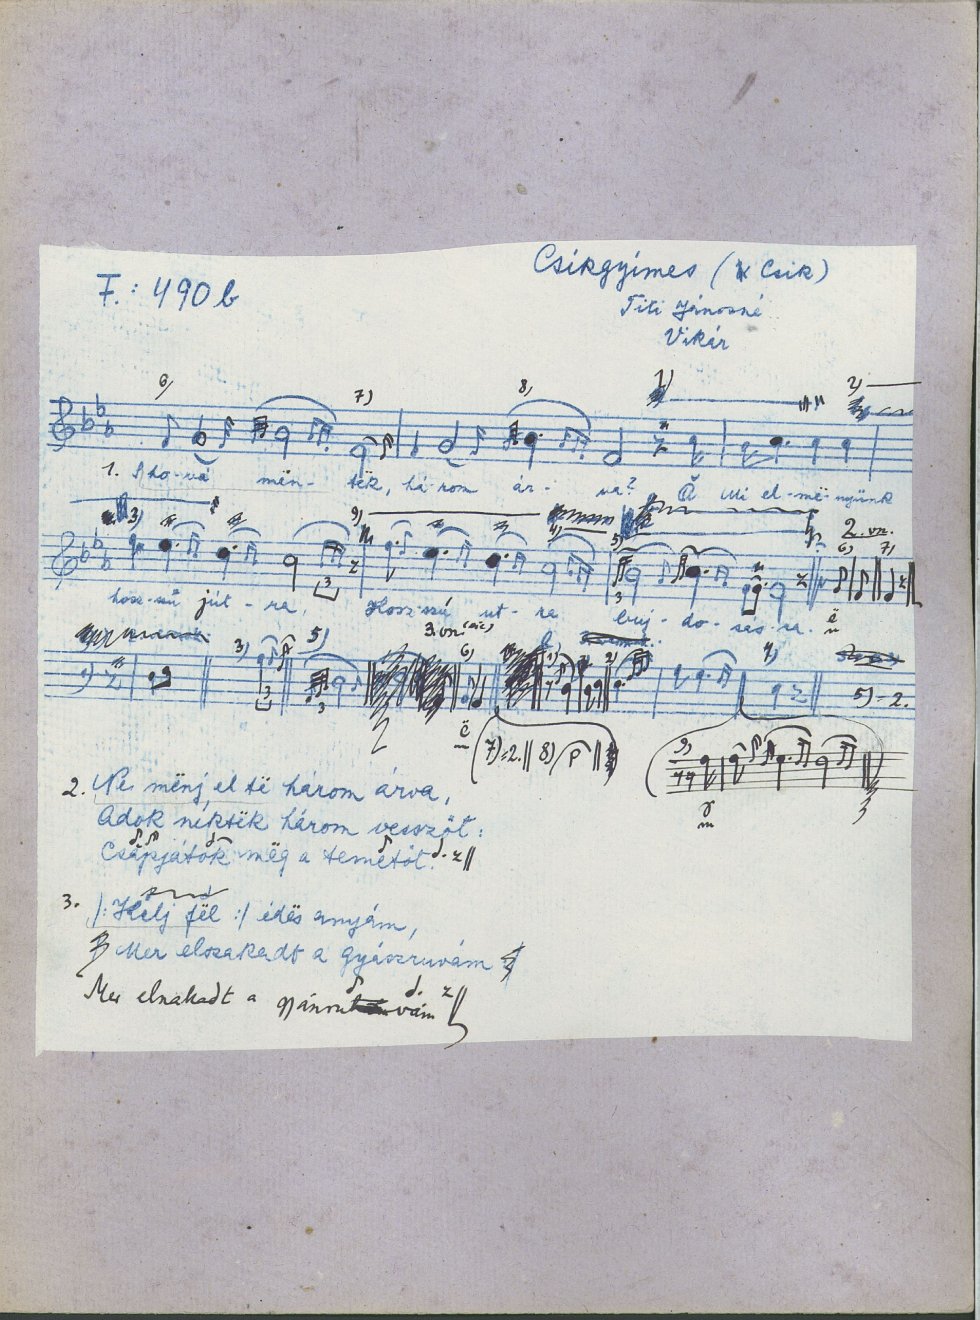 F.: 490b
Csikgyimes (Csik)
Titi Jánosné
Vikár
6) 7) 8) 1) 2)
1. Ho-vá mën-tëk, há-rom ár-va? Mi el-më-nyünk
3) 9) 4) 5) 2. vn. 6) 7)
hosz-szú jút-ra, Hosz-szú ut-ra buj-do-sás-ra.
3) 5) 3. vn. (sic) 6) 1) 2) 4) 5) = 2.
7) = 2. 8)
9)
2. Ne mënj el të három árva,
Adok nëktëk három vesszőt:
Csapjátok mëg a temetőt.
3. |: Kelj fël :| édës anyám,
Mer elszakadt a gyászruvám
Mer elszakadt a vám